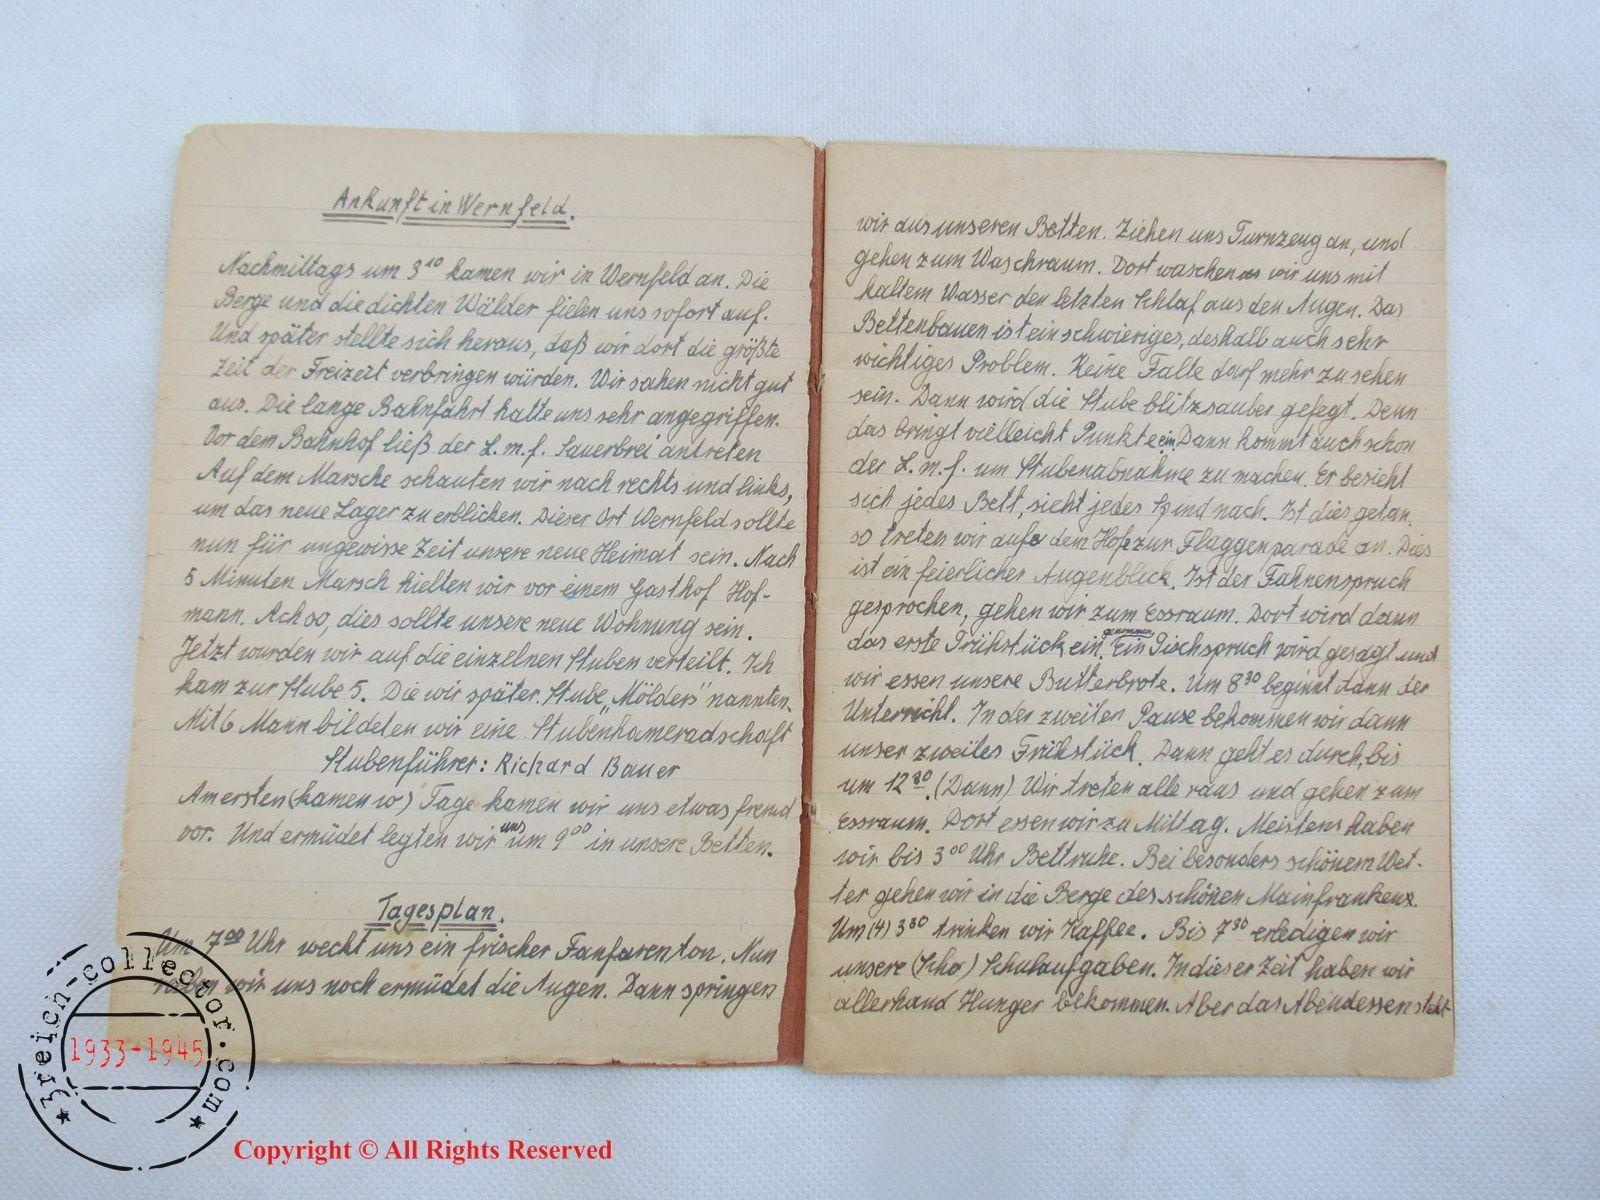 Ankunft in Wernfeld.
Nachmittags um 3¹⁰ kamen wir in Wernfeld an. Die
Berge und die dichten Wälder fielen uns sofort auf.
Und später stellte sich heraus, daß wir dort die größte
Zeit der Freizeit verbringen würden. Wir sahen nicht gut
aus. Die lange Bahnfahrt hatte uns sehr angegriffen.
Vor dem Bahnhof ließ der L.m.f. Sauerbrei antreten
Auf dem Marsche schauten wir nach rechts und links,
um das neue Lager zu erblicken. Dieser Ort Wernfeld sollte
nun für ungewisse Zeit unsere neue Heimat sein. Nach
5 Minuten Marsch hielten wir vor einem Gasthof Hof-
mann. Ach so, dies sollte unsere neue Wohnung sein.
Jetzt wurden wir auf die einzelnen Stuben verteilt. Ich
kam zur Stube 5. Die wir später Stube „Mölders" nannten.
Mit 6 Mann bildeten wir eine Stubenkameradschaft
Stubenführer: Richard Bauer
Am ersten (kamen w) Tage kamen wir uns etwas fremd
vor. Und ermüdet legten wir uns um 9⁰⁰ in unsere Betten.
Tagesplan.
Um 7⁰⁰ Uhr weckt uns ein frischer Fanfarenton. Nun
wir uns noch ermüdet die Augen. Dann springen
wir aus unseren Betten. Ziehen uns Turnzeug an, und
gehen zum Waschraum. Dort waschen wir uns mit
kaltem Wasser den letzten Schlaf aus den Augen. Das
Bettenbauen ist ein schwieriges, deshalb auch sehr
wichtiges Problem. Keine Falte darf mehr zu sehen
sein. Dann wird die Stube blitzsauber gefegt. Denn
das bringt vielleicht Punkte ein. Dann kommt auch schon
der L.m.f. um Stubenabnahme zu machen. Er besieht
sich jedes Bett, sieht jedes Spind nach. Ist dies getan,
so treten wir auf dem Hofe zur Flaggenparade an. Dies
ist ein feierlicher Augenblick. Ist der Fahnenspruch
gesprochen, gehen wir zum Essraum. Dort wird dann
das erste Frühstück eingenommen. Ein Tischspruch wird gesagt und
wir essen unsere Butterbrote. Um 8³⁰ beginnt dann der
Unterricht. In der zweiten Pause bekommen wir dann
unser zweites Frühstück. Dann geht es durch, bis
um 12³⁰. (Dann) Wir treten alle raus und gehen zum
Essraum. Dort essen wir zu Mittag. Meistens haben
wir bis 3⁰⁰ Uhr Bettruhe. Bei besonders schönem Wet-
ter gehen wir in die Berge des schönen Mainfranken.
Um (4) 3³⁰ trinken wir Kaffee. Bis 7³⁰ erledigen wir
unsere (Scho) Schulaufgaben. In dieser Zeit haben wir
allerhand Hunger bekommen. Aber das Abendessen steht
3reich-collector.com
1933-1945
Copyright © All Rights Reserved